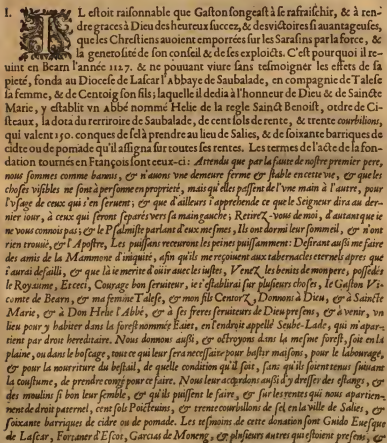 I. IL estoit raisonnable que Gaston songeast à se rafraischir, & à ren-
dre graces à Dieu des heureux succez, & des victoires si auantageuses,
que les Chrestiens auoient emportées sur les Sarasins par la force, &
la generosité de son conseil & de ses exploicts. C'est pourquoi il re-
uint en Bearn l'année 1127. & ne pouuant viure sans tesmoigner les effets de sa
pieté, fonda au Diocese de Lascar l'Abbaye de Saubalade, en compagnie de Talese
sa femme, & de Centoig son fils; laquelle il dedia à l'honneur de Dieu & de Saincte
Marie, y establit vn Abbé nommé Helie de la regle Sainct Benoist, ordre de Ci-
steaux, la dota du territoire de Saubalade, de cent sols de rente, & trente courbilions,
qui valent 150. conques de sel à prendre au lieu de Salies, & de soixante barriques de
cidte ou de pomade qu'il assigna sur toutes ses rentes. Les termes de l'acte de la fon-
dation tournés en François sont ceux-ci: Attendu que par la faute de nostre premier pere,
nous sommes comme bannis, & n'auons vne demeure ferme & stable en cette vie, & que les
choses visibles ne sont à personne en proprieté, mais qu'elles passent de l'vne main à l'autre, pour
l'vsage de ceux qui s'en seruent; & que d'ailleurs i'apprehende ce que le Seigneur dira au der-
nier iour, à ceux qui seront separés vers sa main gauche; Retirez-vous de moi, d'autant que ie
ne vous connois pas; & le Psalmiste parlant d'eux mesmes, Ils ont dormi leur sommeil, & n'ont
rien trouué, & l'Apostre, Les puissans receuront les peines puissamment: Desirant aussi me faire
des amis de la Mammone d'iniquité, afin qu'ils me reçoiuent aux tabernacles eternels apres que
i'aurai defailli, & que là ie merite d'ouir auec les iustes, Venez les benits de mon pere, possedés
le Royaume, Et ceci, Courage bon seruiteur, ie t'establirai sur plusieurs choses, Ie Gaston Vi-
comte de Bearn, & ma femme Talese, & mon fils Centorz, Donnons à Dieu, & à Saincte
Marie, & à Don Helie l'Abbé, & à ses freres seruiteurs de Dieu presens, & à venir, vn
lieu pour y habiter dans la forest nommée Euet, en l'endroit appellé Seube-Lade, qui m'apar-
tient par droit hereditaire. Nous donnons aussi, & octroyons dans la mesme forest, soit en la
plaine, ou dans le boscage, tout ce qui leur sera necessaire pour bastir maisons, pour le labourage,
& pour la nourriture du bestail, de quelle condition qu'il soit, sans qu'ils soient tenus suiuant
la coustume, de prendre congé pour ce faire. Nous leur acordons aussi d'y dresser des estangs, &
des moulins si bon leur semble, & qu'ils puissent le faire, & sur les rentes qui nous apartien-
nent de droit paternel, cent sols Poicteuins, & trente courbillons de sel en la ville de Salies, &
soixante barriques de cidre ou de pomade. Les tesmoins de cette donation sont Guido Euesque
de Lascar, Fortaner d'Escot, Garcias de Moneng, & plusieurs autres que soient presens,